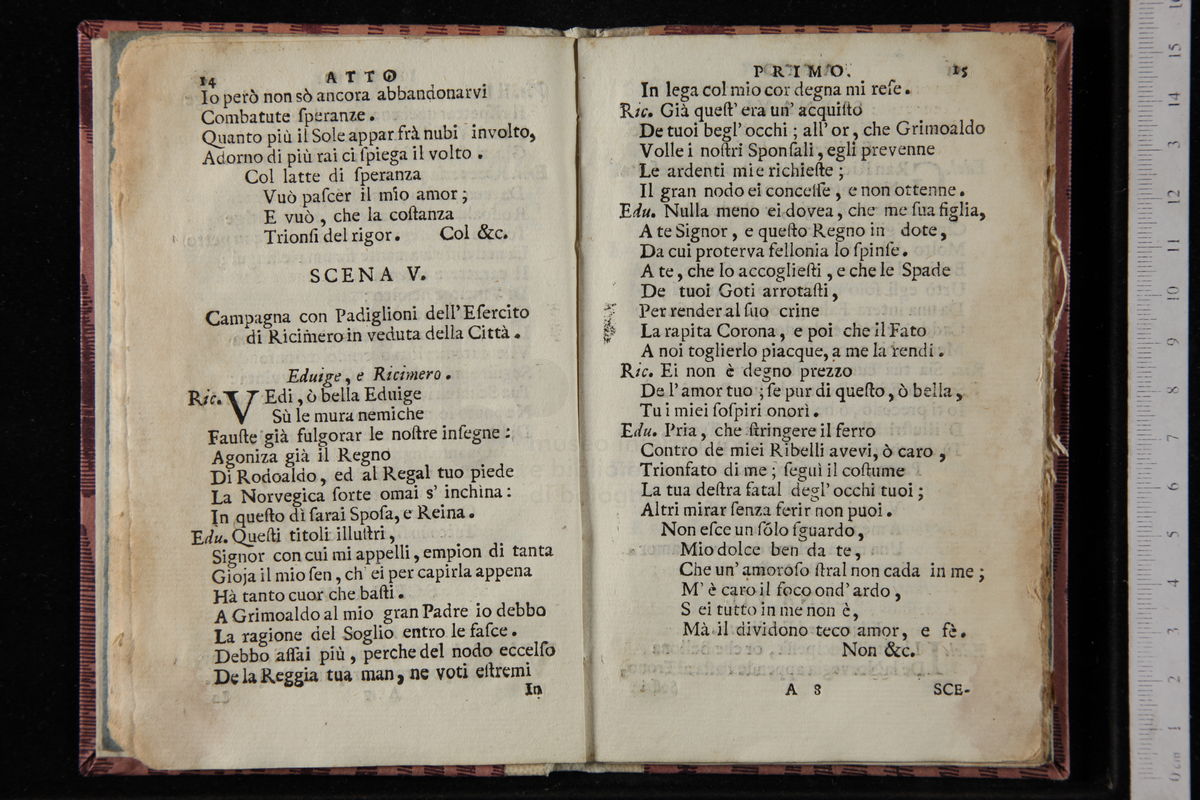 14 ATTO
Io però non sò ancora abbandonarvi
Combatute ſperanze.
Quanto più il Sole appar frà nubi involto,
Adorno di più rai ci ſpiega il volto.
Col latte di ſperanza
Vuò paſcer il mio amor;
E vuò, che la coſtanza
Trionfi del rigor. Col &c.
SCENA V.
Campagna con Padiglioni dell'Eſercito
di Ricimero in veduta della Città.
Eduige, e Ricimero.
Ric. VEdi, ò bella Eduige
Sù le mura nemiche
Fauſte già fulgorar le noſtre inſegne:
Agoniza già il Regno
Di Rodoaldo, ed al Regal tuo piede
La Norvegica ſorte omai s'inchina:
In queſto dì ſarai Spoſa, e Reina.
Edu. Queſti titoli illuſtri,
Signor con cui mi appelli, empion di tanta
Gioja il mio ſen, ch'ei per capirla appena
Hà tanto cuor che baſti.
A Grimoaldo al mio gran Padre io debbo
La ragione del Soglio entro le faſce.
Debbo aſſai più, perche del nodo eccelſo
De la Reggia tua man, ne voti eſtremi
In
PRIMO. 15
In lega col mio cor degna mi reſe.
Ric. Già queſt'era un'acquiſto
De tuoi begl'occhi; all'or, che Grimoaldo
Volle i noſtri Sponſali, egli prevenne
Le ardenti mie richieſte;
Il gran nodo ei conceſſe, e non ottenne.
Edu. Nulla meno ei dovea, che me ſua figlia,
A te Signor, e queſto Regno in dote,
Da cui proterva fellonia lo ſpinſe.
A te, che lo accoglieſti, e che le Spade
De tuoi Goti arrotaſti,
Per render al ſuo crine
La rapita Corona, e poi che il Fato
A noi toglierlo piacque, a me la rendi.
Ric. Ei non è degno prezzo
De l'amor tuo; ſe pur di queſto, ò bella,
Tu i miei ſoſpiri onori.
Edu. Pria, che ſtringere il ferro
Contro de miei Ribelli avevi, ò caro,
Trionfato di me; ſeguì il coſtume
La tua deſtra fatal degl'occhi tuoi;
Altri mirar ſenza ferir non puoi.
Non eſce un ſolo ſguardo,
Mio dolce ben da te,
Che un'amoroſo ſtral non cada in me;
M'è caro il foco ond'ardo,
S ei tutto in me non è,
Mà il dividono teco amor, e fè.
Non &c.
A 8 SCE-